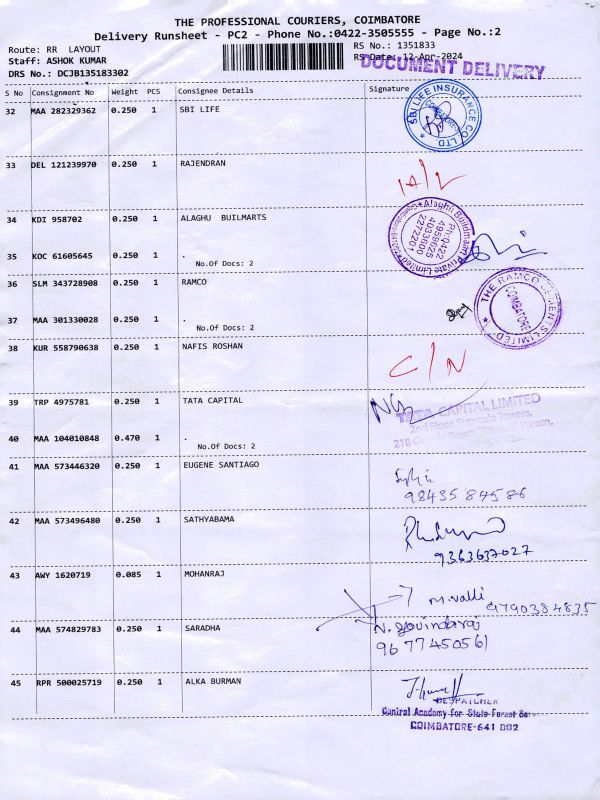 THE PROFESSIONAL COURIERS, COIMBATORE
Delivery Runsheet - PC2 - Phone No.:0422-3505555 - Page No.:2
Route: RR LAYOUT
RS No.: 1351833
Staff: ASHOK KUMAR
RS Date: 12-Apr-2024
DOCUMENT DELIVERY
DRS No.: DCJB135183302
S No Consignment No Weight PCS Consignee Details Signature
32 MAA 282329362 0.250 1 SBI LIFE
SBI LIFE INSURANCE CO LTD
33 DEL 121239970 0.250 1 RAJENDRAN
34 KDI 958702 0.250 1 ALAGHU BUILMARTS
Alaghu Buildmaart Private Limited
Ph:0422
4959625
4033600
2272201
35 KOC 61605645 0.250 1 .
No.Of Docs: 2
36 SLM 343728908 0.250 1 RAMCO
THE RAMCO CEMENTS LIMITED
COIMBATORE
37 MAA 301330028 0.250 1 .
No.Of Docs: 2
38 KUR 558790638 0.250 1 NAFIS ROSHAN
C/N
39 TRP 4975781 0.250 1 TATA CAPITAL
TATA CAPITAL LIMITED
2nd Floor Towers,
40 MAA 104010848 0.470 1 .
No.Of Docs: 2
41 MAA 573446320 0.250 1 EUGENE SANTIAGO
9843584586
42 AWY 573496480 0.250 1 SATHYABAMA
9363637027
43 AWY 1620719 0.085 1 MOHANRAJ
M.Valli
9790384835
44 MAA 574829783 0.250 1 SARADHA
N. Govindaraj
9677450561
45 RPR 500025719 0.250 1 ALKA BURMAN
DESPATCHER
Central Academy for State Forest Ser
COIMBATORE-641 002